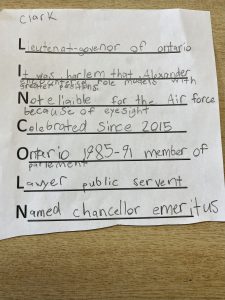 Clark
Lieutenat-govenor of ontario
It was harlem that Alexander
encountered role models with
greater positions
Not eliaible for the Air force
because of eyesight
Celebrated since 2015
Ontario 1985-91 member of
parlement
Lawyer public servent
Named chancellor emeritus